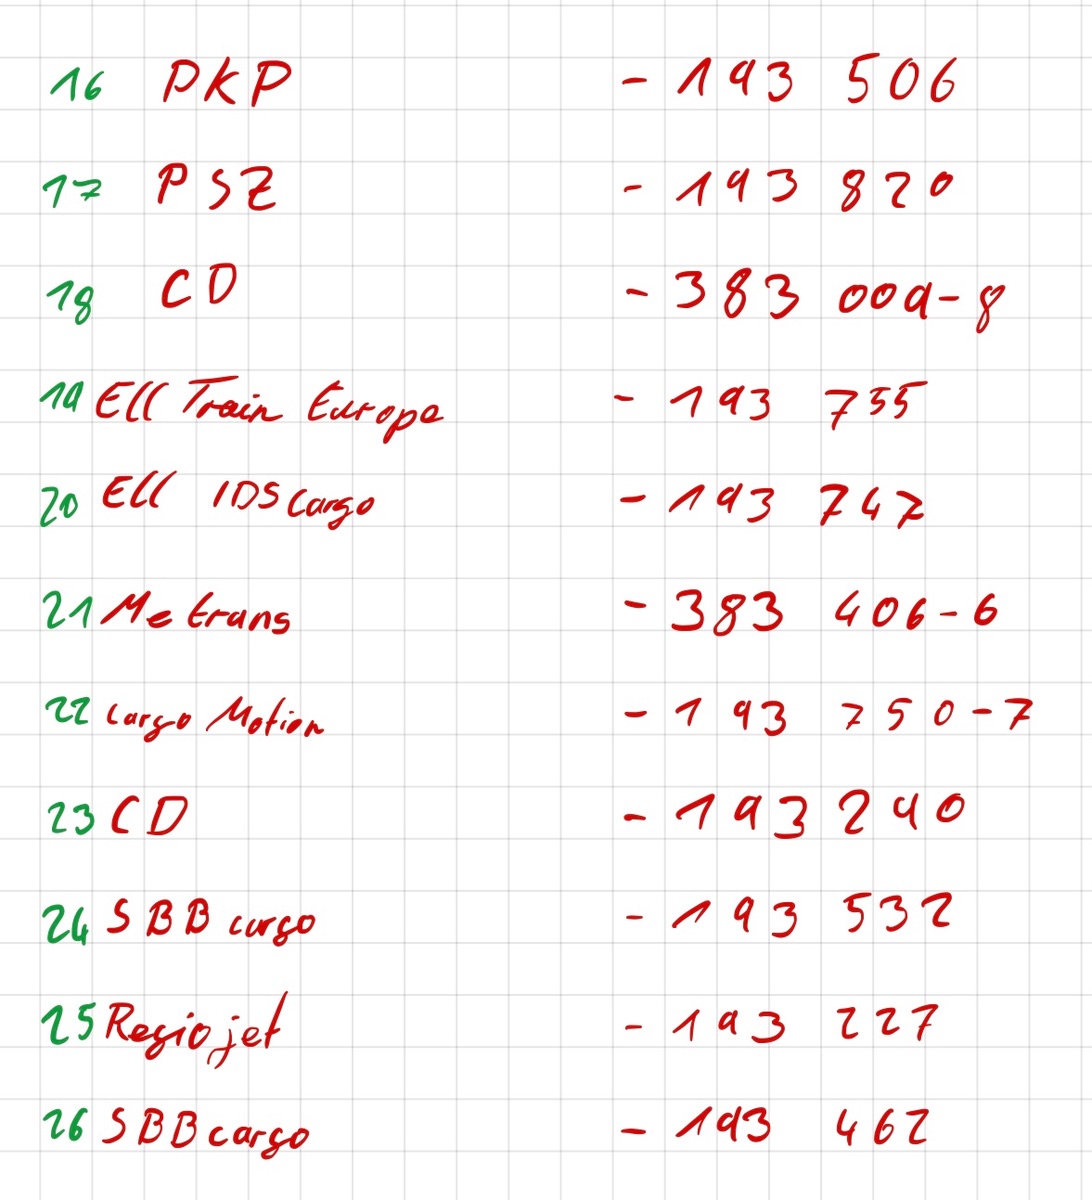 16 PKP - 193 506
17 PSZ - 193 820
18 CD - 383 009-8
19 Ell Train Europe - 193 755
20 Ell IDS Cargo - 193 747
21 Metrans - 383 406-6
22 Cargo Motion - 193 750-7
23 CD - 193 290
24 SBB cargo - 193 532
25 Regiojet - 193 227
26 SBB cargo - 193 462